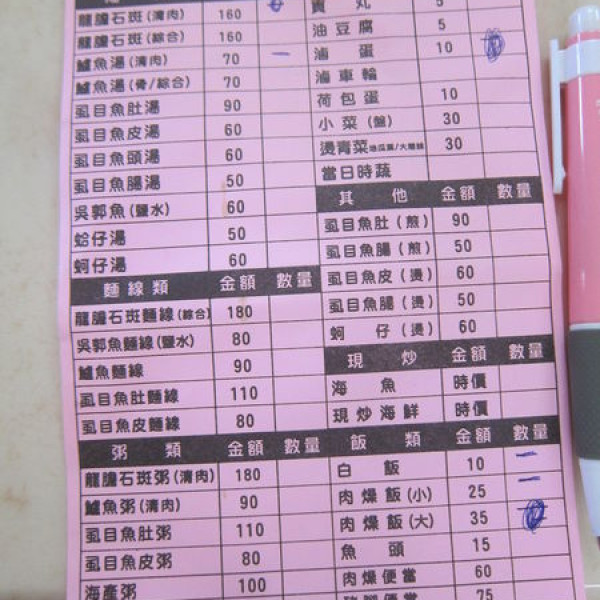 龍膽石斑(清肉) 160
龍膽石斑(綜合) 160
鱸魚湯(清肉) 70
鱸魚湯(骨/綜合) 70
虱目魚肚湯 90
虱目魚皮湯 60
虱目魚頭湯 60
虱目魚腸湯 50
吳郭魚(鹽水) 60
蛤仔湯 50
蚵仔湯 60
麵線類 金額 數量
龍膽石斑麵線(綜合) 180
吳郭魚麵線(鹽水) 80
鱸魚麵線 90
虱目魚肚麵線 110
虱目魚皮麵線 80
粥類 金額 數量
龍膽石斑粥(清肉) 180
鱸魚粥(清肉) 90
虱目魚肚粥 110
虱目魚皮粥 80
海產粥 100
貢丸 5
油豆腐 5
滷蛋 10
滷車輪
荷包蛋 10
小菜(盤) 30
燙青菜 30
當日時蔬
其他 金額 數量
虱目魚肚(煎) 90
虱目魚腸(煎) 50
虱目魚皮(燙) 60
虱目魚腸(燙) 50
蚵仔(燙) 60
現炒 金額 數量
海魚 時價
現炒海鮮 時價
飯類 金額 數量
白飯 10
肉燥飯(小) 25
肉燥飯(大) 35
魚頭 15
肉燥便當 60
豬腳便當 75